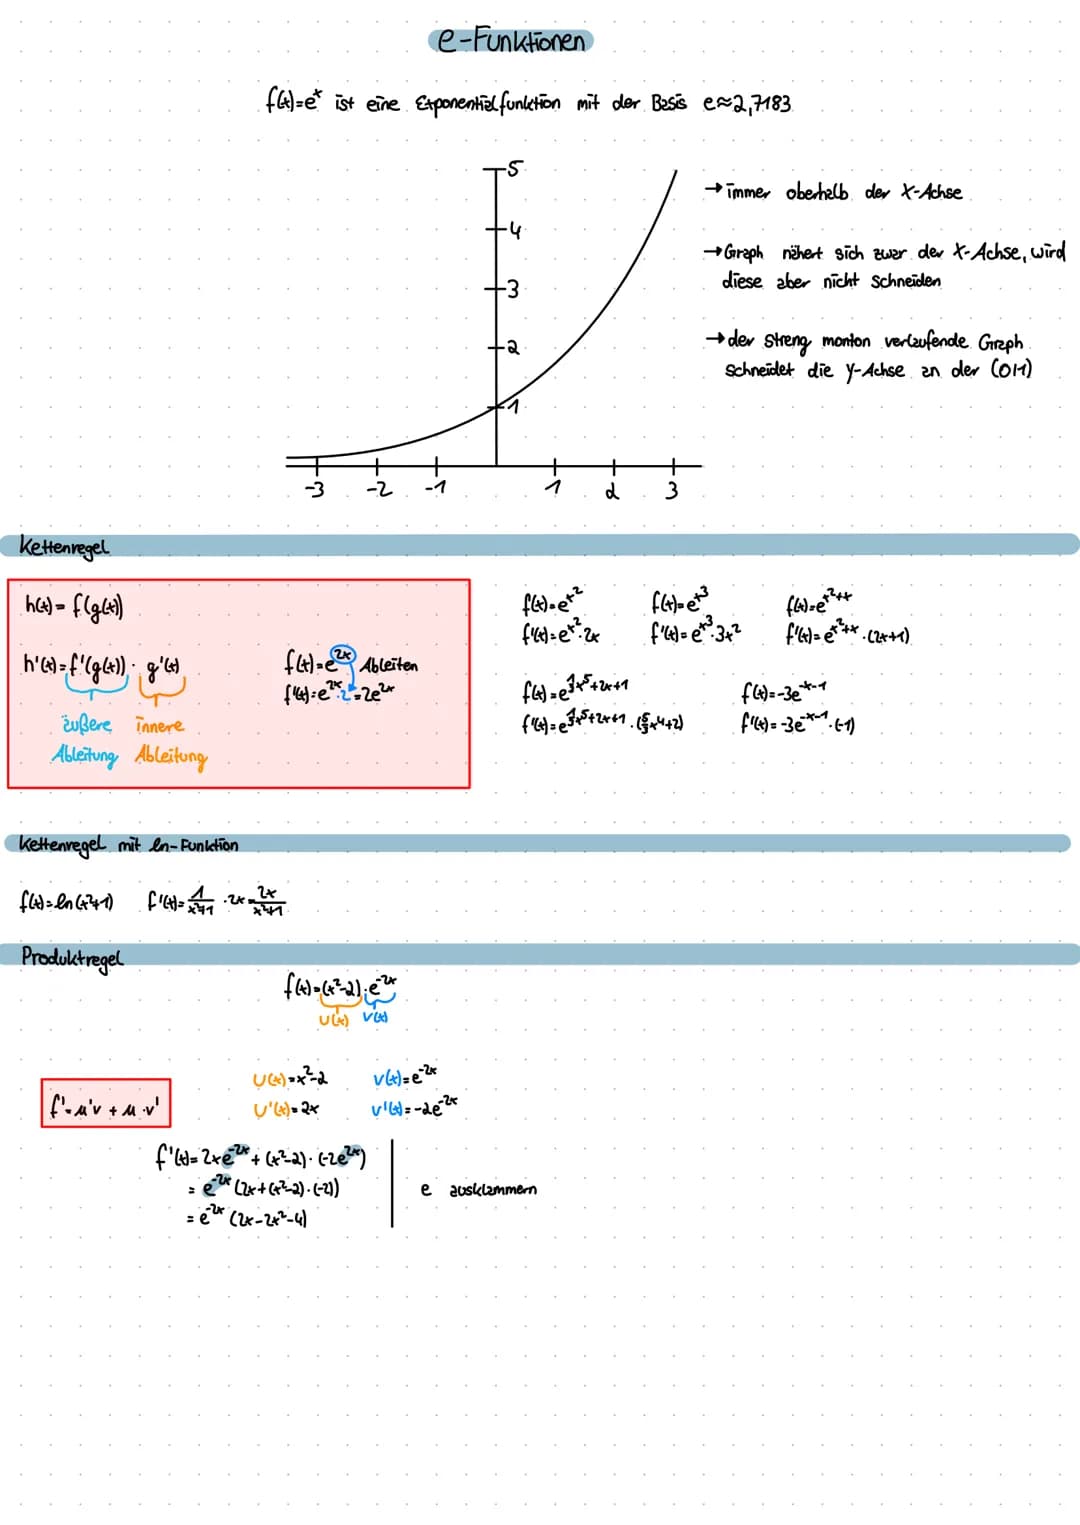 e-Funktionen
f(x)=e^x ist eine Exponentialfunktion mit der Basis e≈2,7183
5
4
3
2
1
-3 -2 -1 1 2 3
→ immer oberhalb der X-Achse
→ Graph nähert sich zwar der X-Achse, wird
diese aber nicht schneiden
→ der streng monton verlaufende Graph
schneidet die y-Achse an der (0|1)
Kettenregel
h(x) = f(g(x))
h'(x) = f'(g(x)) · g'(x)
äußere innere
Ableitung Ableitung
f(x)=e^2x Ableiten
f'(x)=e^2x·2=2e^2x
f(x)=e^x² f(x)=e^x³ f(x)=e^x²+x
f'(x)=e^x²·2x f'(x)=e^x³·3x² f'(x)=e^x²+x·(2x+1)
f(x)=e^1/3x⁵+2x+1 f(x)=-3e^-x-1
f'(x)=e^1/3x⁵+2x+1·(5/3x⁴+2) f'(x)=-3e^-x-1·(-1)
Kettenregel mit ln-Funktion
f(x)=ln(x²+1) f'(x)=1/x²+1 ·2x=2x/x²+1
Produktregel
f(x)=(x²-2)·e^-2x
U(x) V(x)
U(x)=x²-2 v(x)=e^-2x
U'(x)=2x v'(x)=-2e^-2x
f'=u'v + u·v'
f'(x)=2xe^-2x+(x²-2)·(-2e^2x)
= e^-2x (2x+(x²-2)·(-2)) e ausklammern
= e^-2x (2x-2x²-4)